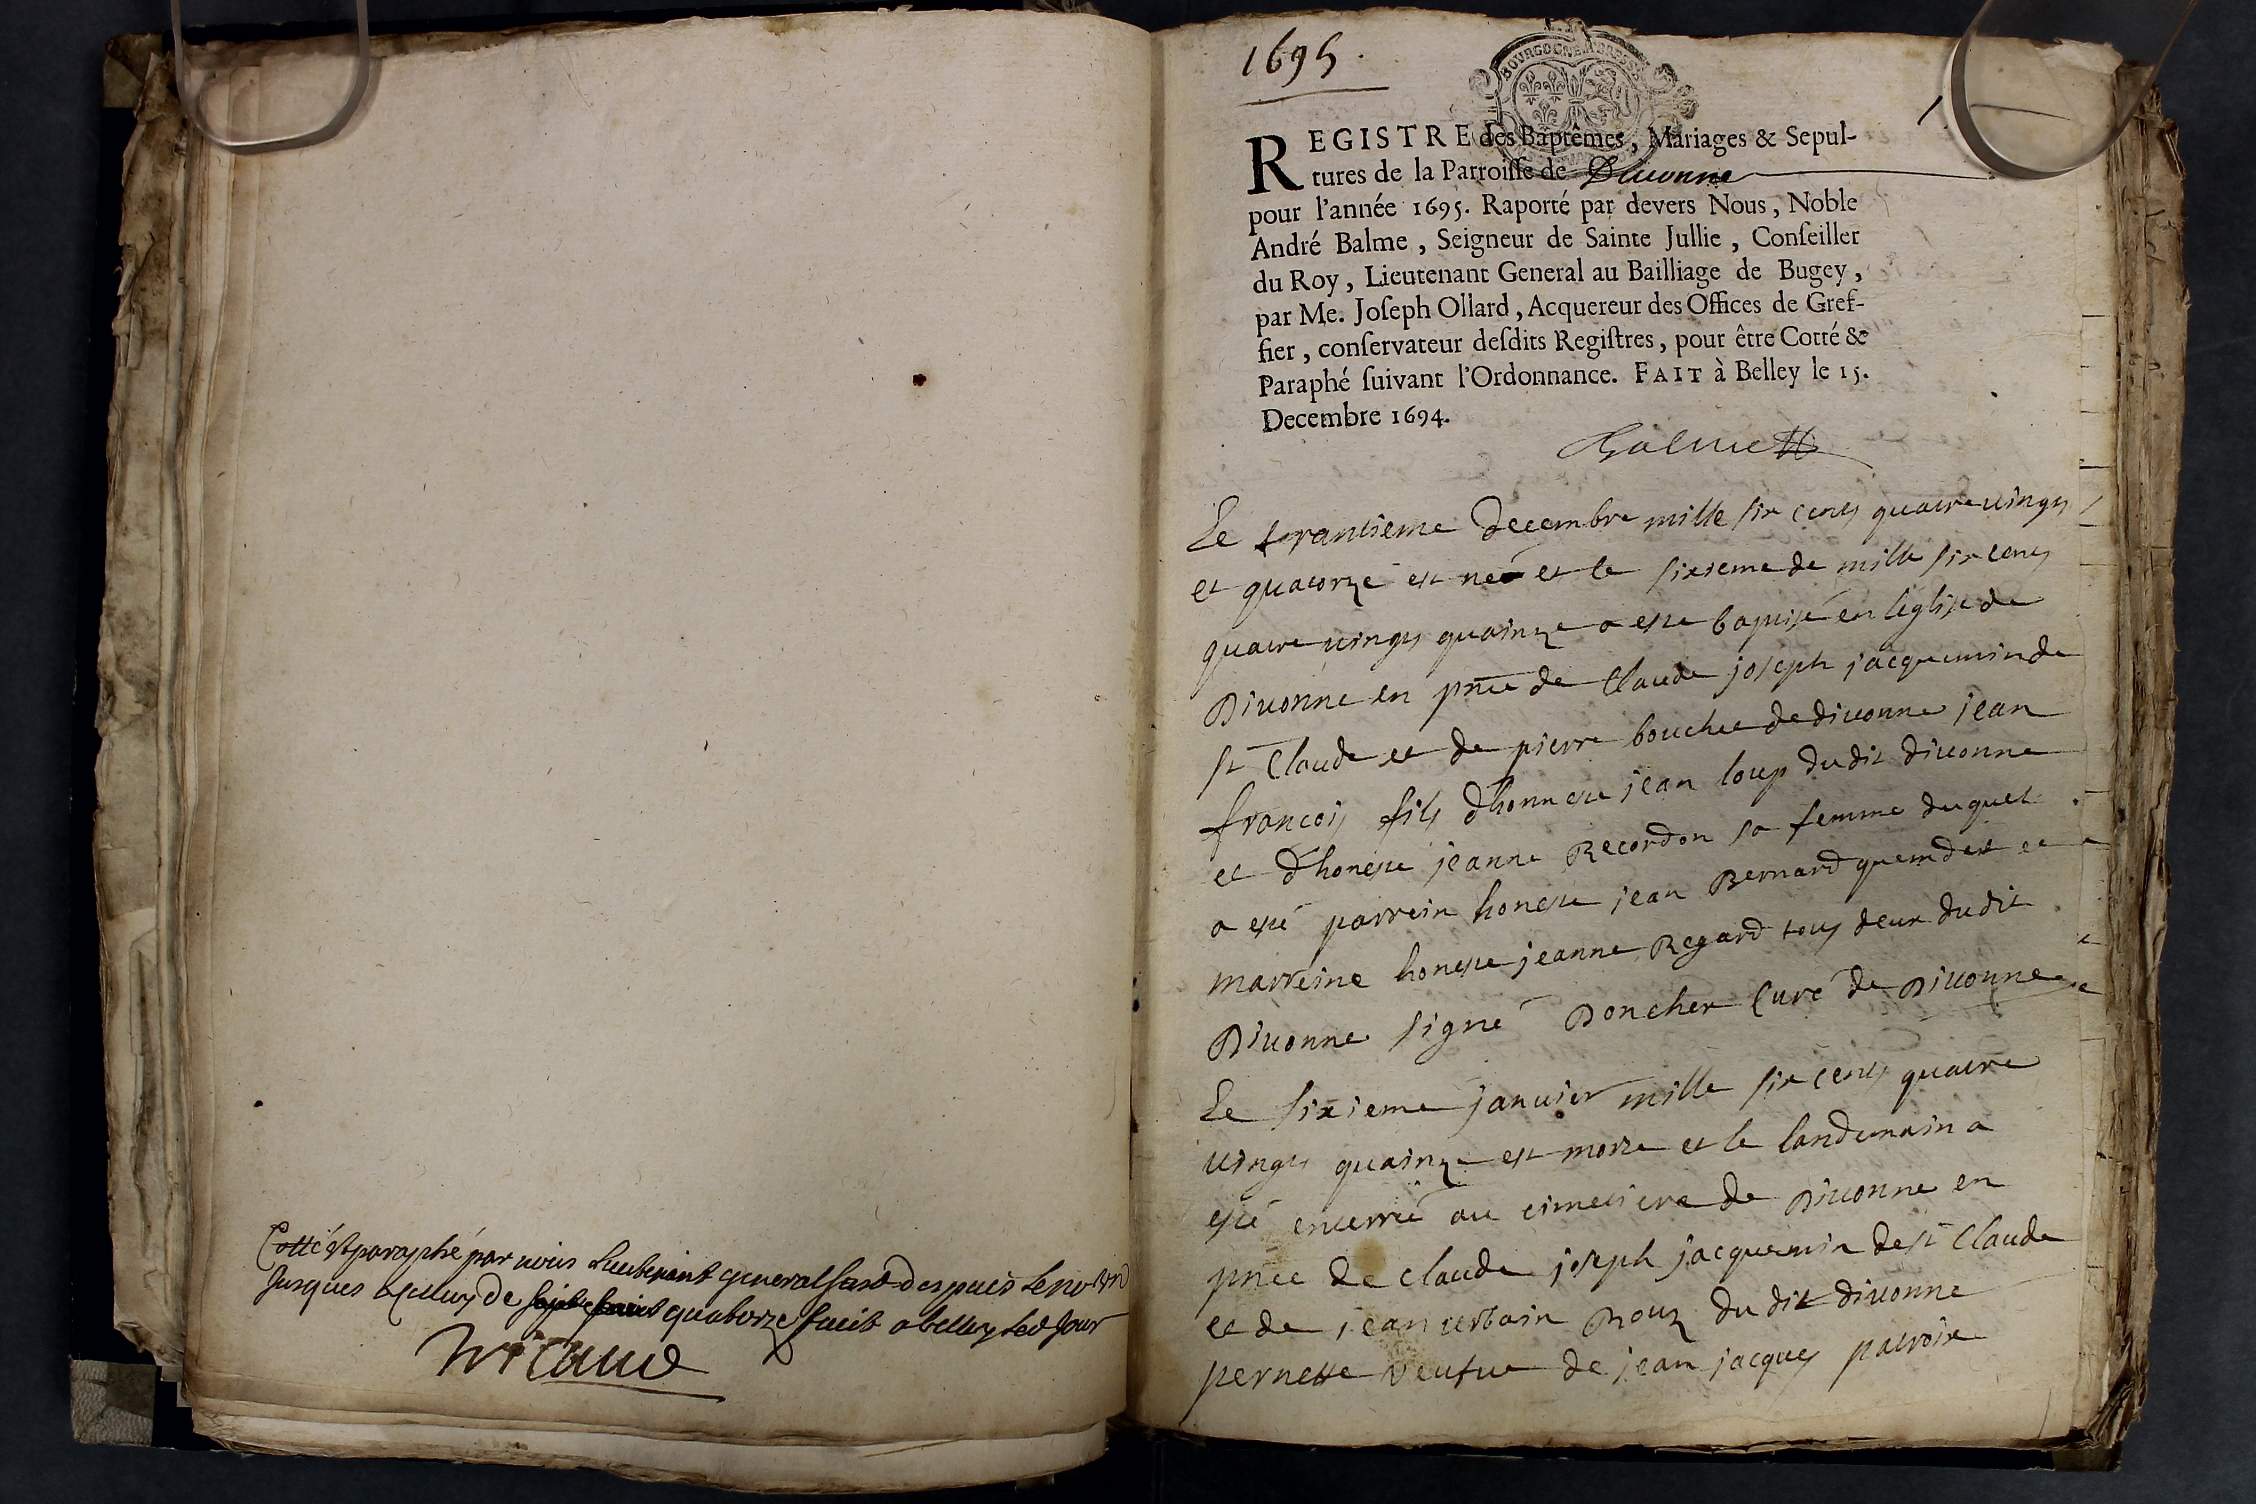 Cotté et paraphé par nous Lieutenant general susd despuis le no un
Jusques a celluy de quatorze faict a belley led Jour
1695.
BOURGOGNE
REGISTRE des Baptêmes, Mariages & Sepul-
tures de la Parroiſſe de Diuonne
pour l'année 1695. Raporté par devers Nous, Noble
André Balme, Seigneur de Sainte Jullie, Conſeiller
du Roy, Lieutenant General au Bailliage de Bugey,
par Me. Joſeph Ollard, Acquereur des Offices de Gref-
fier, conſervateur deſdits Regiſtres, pour être Cotté &
Paraphé ſuivant l'Ordonnance. FAIT à Belley le 15.
Decembre 1694.
Balme
Le trantieme decembre mille six cents quatre uingts
et quatorze est né et le sixieme de mille six cents
quatre uingts quainze a esté baptisé en leglise de
Diuonne en pnce de Claude joseph jacquemin de
st Claude et de pierre bouchee de diuonne jean
francois fils dhonneste jean loup dudit diuonne
et dhoneste jeanne Recordon sa femme duquel
a esté parrein honeste jean Bernard et
marreine honeste jeanne Regard tous deux dudit
Diuonne signé Boncher Curé de Diuonne
Le sixieme januier mille six cents quatre
uingts quainze est morte et le landemain a
esté enterrée au cimetiere de Diuonne en
pnce de claude joseph jacquemin de st Claude
et de jean urbain Rouz du dit diuonne
pernette veufue de jean jacques patroix